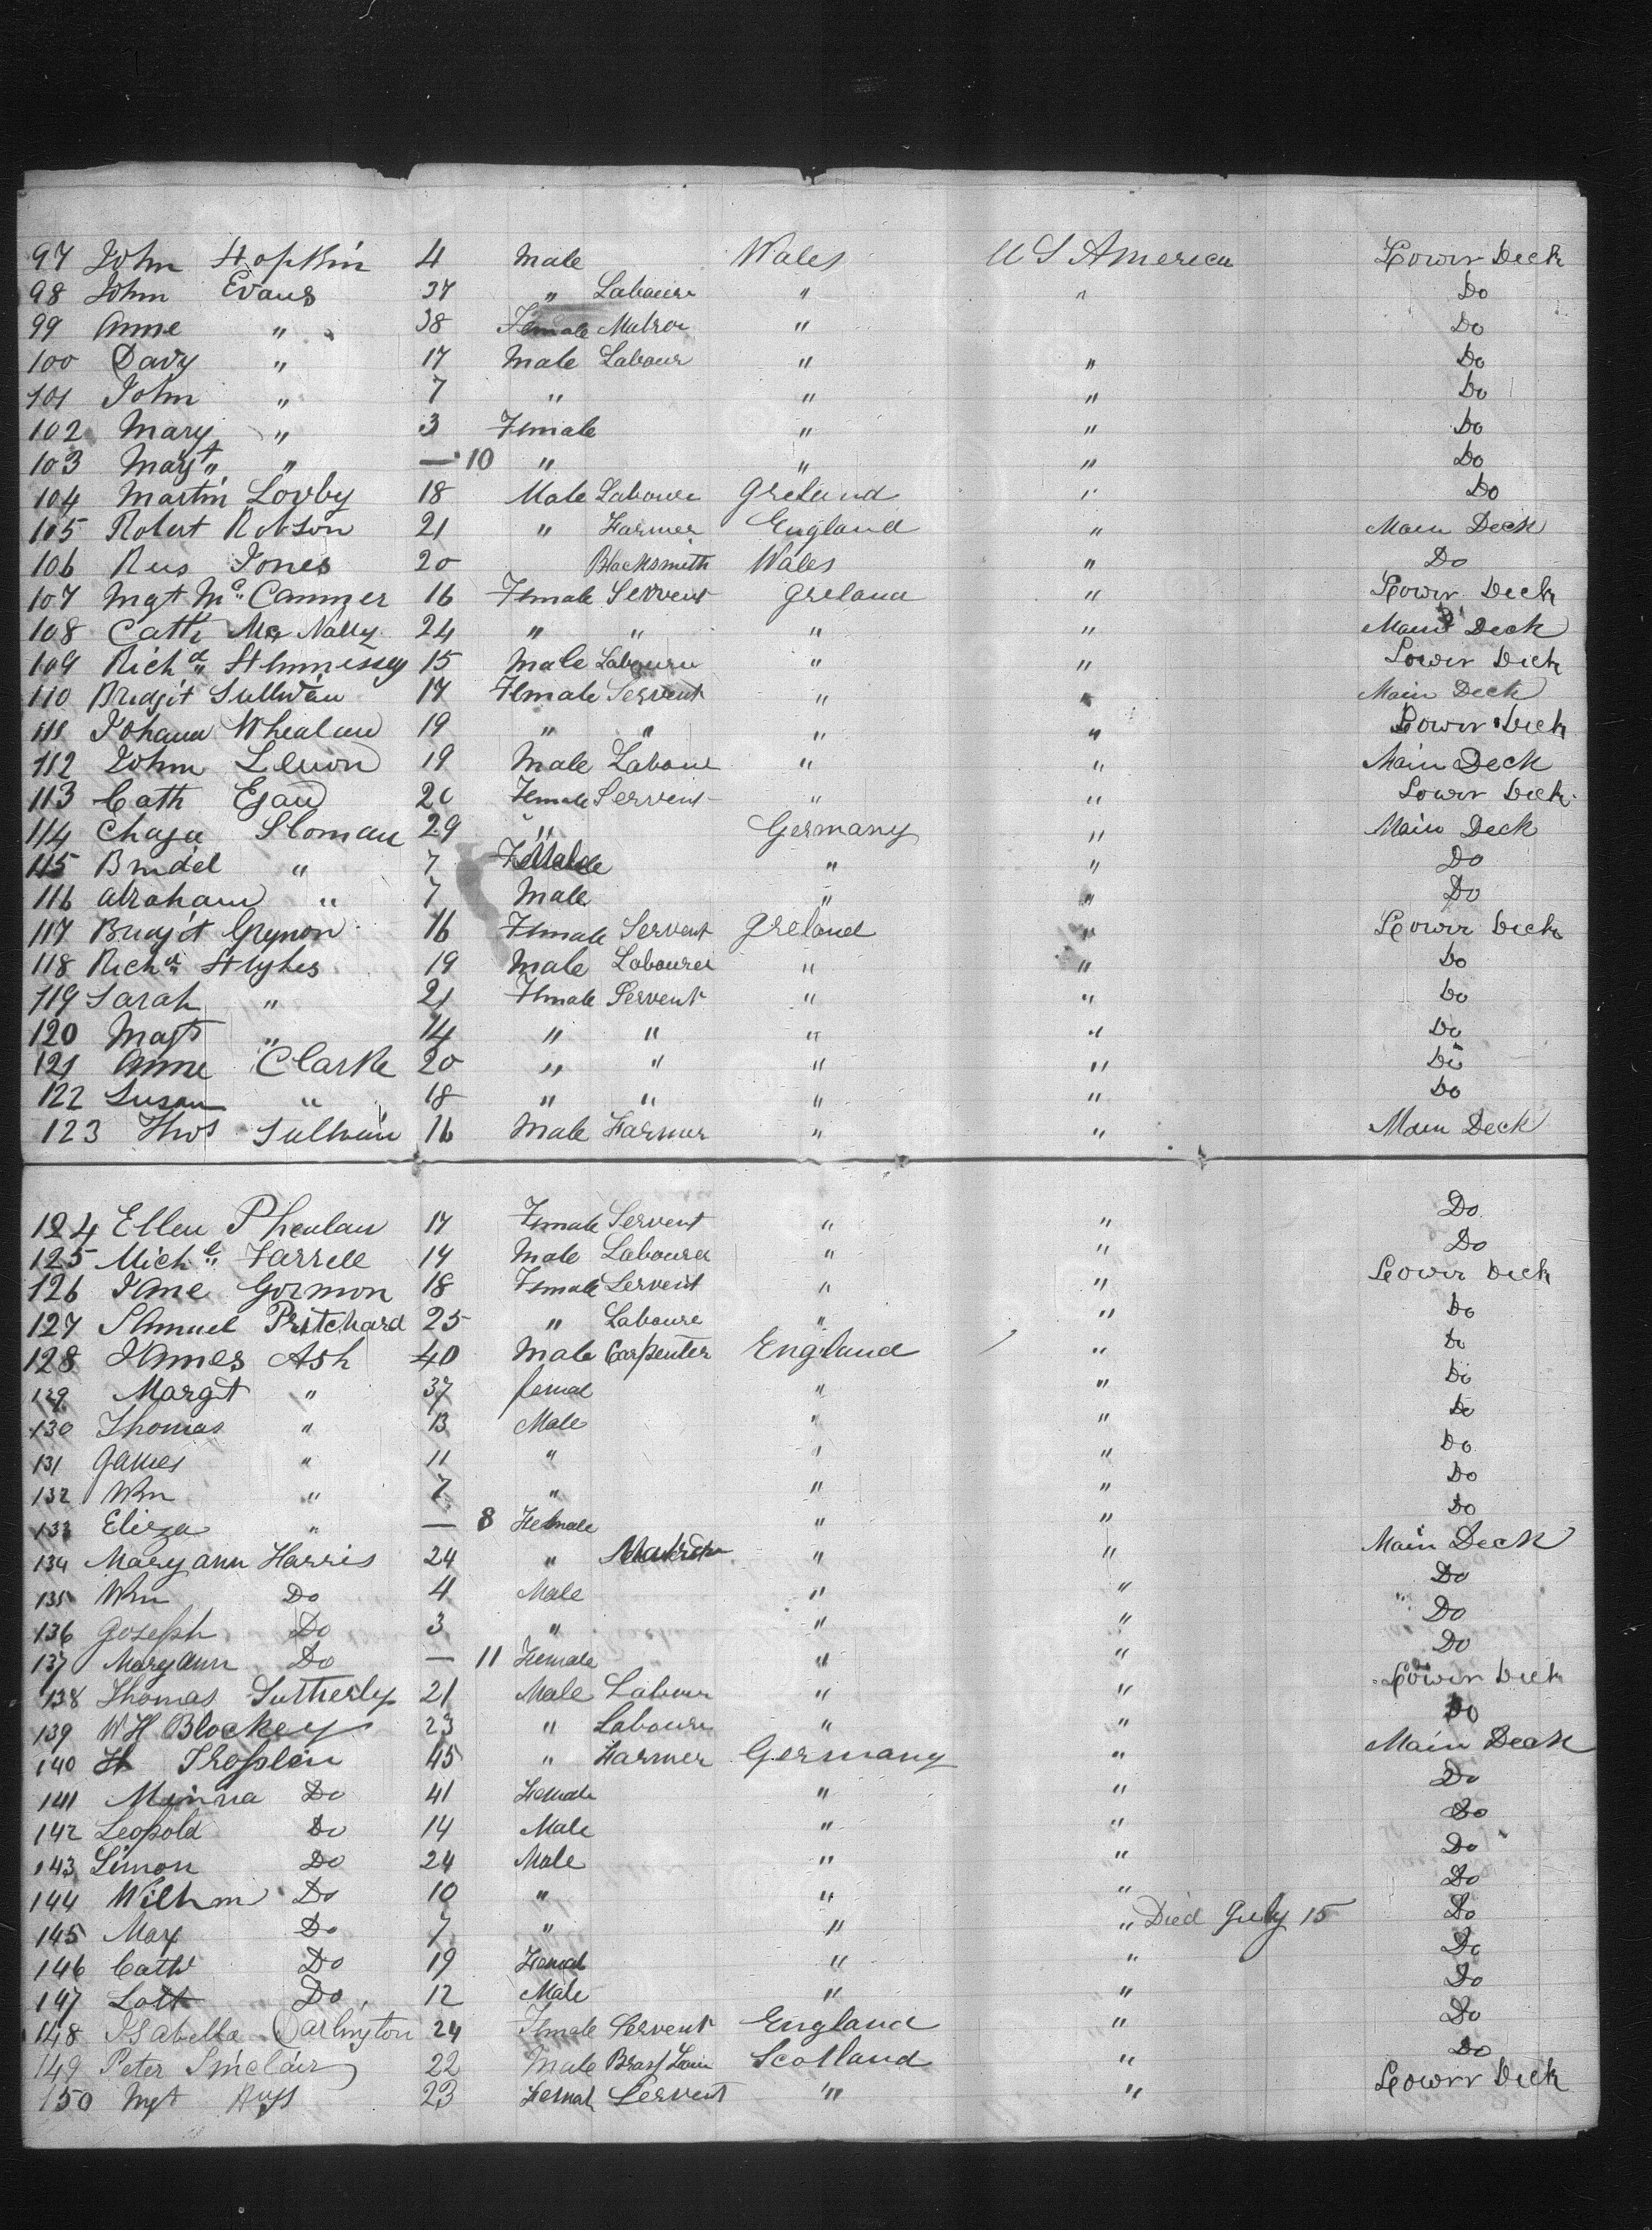 97 John Hopkin 4 Male Wales U S America Lower Deck
98 John Evans 37 " Labourer " " Do
99 Anne " 38 Female Matron " Do
100 Davy " 17 Male Labour " " Do
101 John " 7 " " " Do
102 Mary " 3 Female " " Do
103 Magt " — 10 " " " Do
104 Martin Lovby 18 Male Laboure Ireland " Do
105 Robert Robson 21 " Farmer England " Main Deck
106 Rees Jones 20 Blacksmith Wales " Do
107 Mgt Mc Canmer 16 Female Servent Ireland " Lower Deck
108 Cath Mc Nally 24 " " " " Main Deck
109 Richd Hennessey 15 Male Labourer " " Lower Deck
110 Bridjit Sullivan 17 Female Servent " " Main Deck
111 Johana Whealan 19 " " " " Lower Deck
112 John Lenon 19 Male Labour " " Main Deck
113 Cath Egan 20 Female Servent " " Lower Deck
114 Chaja Sloman 29 " Germany " Main Deck
115 Breidel " 7 " " Do
116 Abraham " 7 Male " " Do
117 Bridjit Grynon 16 Female Servent Ireland " Lower Deck
118 Richd Hykes 19 Male Labourer " " Do
119 Sarah " 21 Female Servent " " Do
120 Magt " 14 " " " " Do
121 Anne Clarke 20 " " " " Do
122 Susan " 18 " " " " Do
123 Thos Sullivan 16 Male Farmer " " Main Deck
124 Ellen Phealan 17 Female Servent " " Do
125 Michl Farrell 14 Male Labourer " " Do
126 Jane Gormon 18 Female Servent " " Lower Deck
127 Samuel Pritchard 25 " Laboure " " Do
128 James Ash 40 Male Carpenter England " Do
129 Margt " 37 femal " " Do
130 Thomas " 13 Male " " Do
131 James " 11 " " " Do
132 Wm " 7 " " " Do
133 Eliza " — 8 Female " " Do
134 Mary ann Harris 24 " Matron " " Main Deck
135 Wm Do 4 Male " " Do
136 Joseph Do 3 " " " Do
137 Mary ann Do — 11 Female " " Do
138 Thomas Sutherley 21 Male Labour " " Lower Deck
139 W H Blockey 23 " Laboure " " Do
140 H Troplein 45 " Farmer Germany " Main Deck
141 Minna Do 41 Female " " Do
142 Leopold Do 14 Male " " Do
143 Simon Do 24 Male " " Do
144 Wilhm Do 10 " " " Do
145 Max Do 7 " " " Died July 15 Do
146 Cath Do 19 Femal " " Do
147 Lott Do 12 Male " " Do
148 Isabella Darlington 24 Female Servent England " Do
149 Peter Sinclair 22 Male Brass Scotland " Do
150 Mgt 23 Femal Servent " " Lower Deck